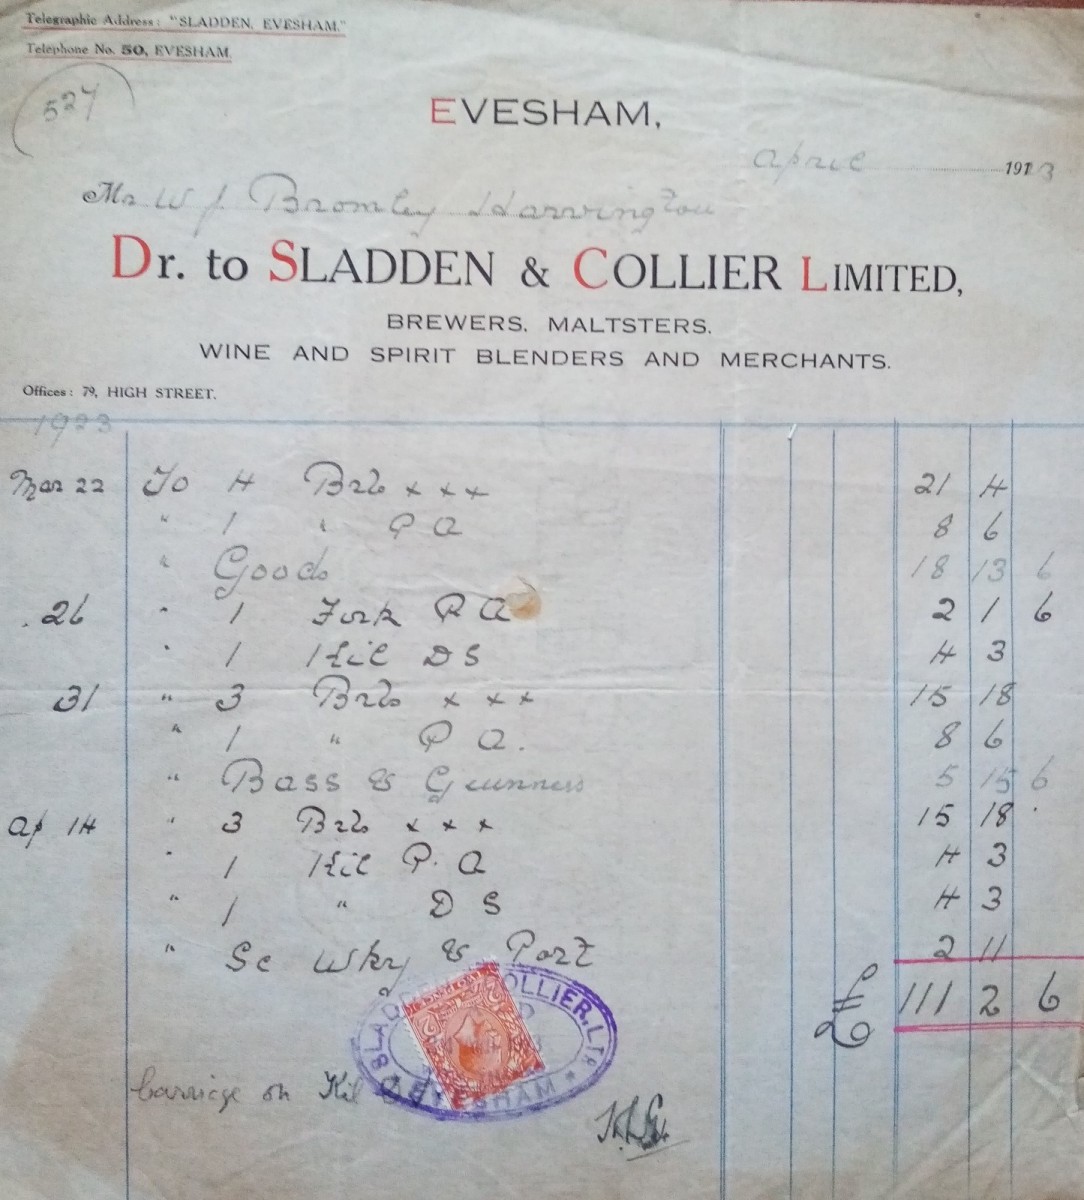 Telegraphic Address: "SLADDEN, EVESHAM."
Telephone No. 50, EVESHAM.
527
EVESHAM,
April 1923
Mr W J Bromley Harvington
Dr. to SLADDEN & COLLIER LIMITED,
BREWERS, MALTSTERS,
WINE AND SPIRIT BLENDERS AND MERCHANTS.
Offices: 79, HIGH STREET.
1923
Mar 22 To 4 Brls x x x 21 4
" 1 " P A 8 6
" Goods 18 13 6
26 " 1 Firk P A 2 1 6
" 1 Kil D S 4 3
31 " 3 Brls x x x 15 18
" 1 " P A. 8 6
" Bass & Guinness 5 15 6
Ap 14 " 3 Brls x x x 15 18
" 1 Kil P. A 4 3
" 1 " D S 4 3
" Sc Wky & Port 2 11
£ 111 2 6
SLADDEN COLLIER, LTD
EVESHAM
Carriage on Kil